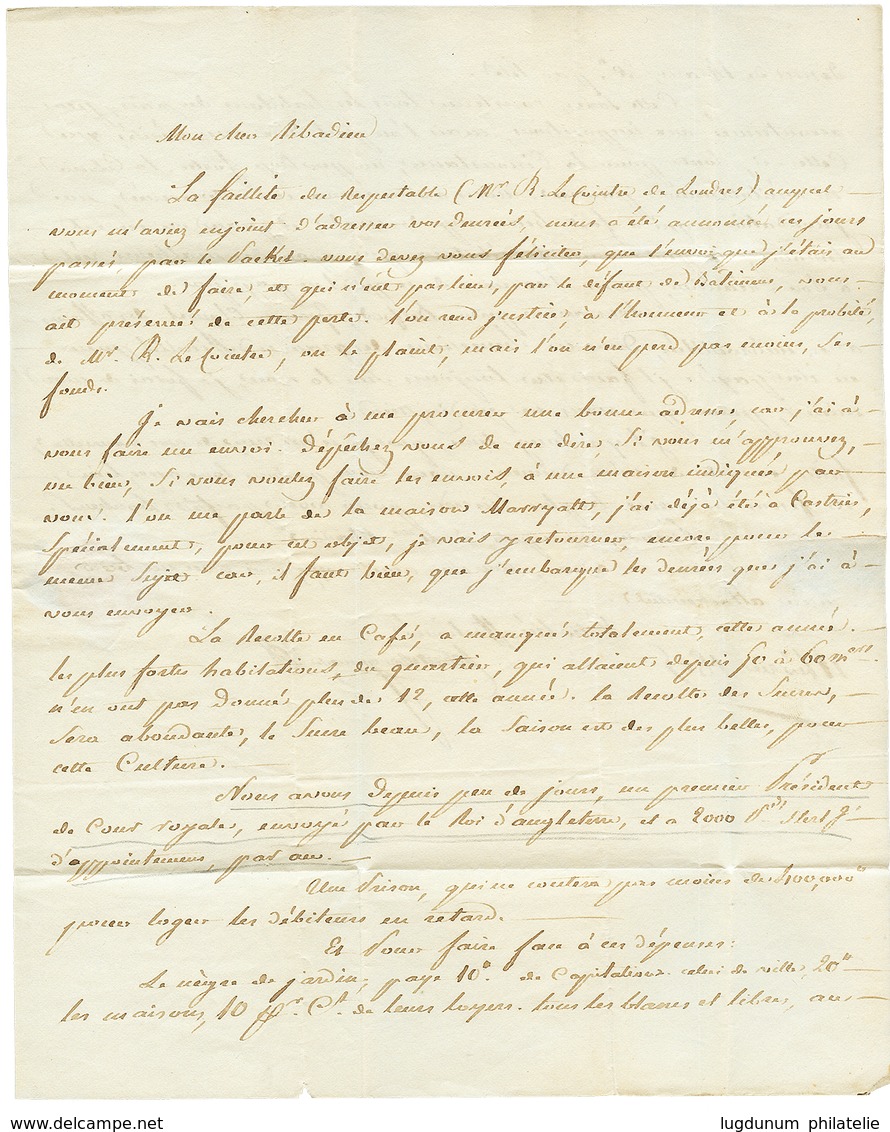 Mon cher Ribadieu
La faillite du Respectable (Mr. R. Le Cointre de Londres) auquel
vous m'aviez enjoint d'adresser vos denrées, nous a été annoncée ces jours
passés, par le Packet. vous devez vous féliciter, que l'envoi que j'étais au
moment de faire, et qui n'eût pas lieu, par le défaut de Batiment, vous
ait préservé de cette perte. l'on rend justice, à l'honneur et à la probité,
de Mr. R. Le Cointre, on le plaint, mais l'on n'en perd pas moins, ses
fonds.
Je vais chercher à me procurer une bonne adresse, car j'ai à
vous faire un envoi. Dépêchez vous de me dire, si vous m'approuvez,
ou bien, si vous voulez faire les envois, à une maison indiquée par
vous. l'on me parle de la maison Marryatt, j'ai déjà été à Castries,
spécialement, pour cet objet, je vais y retourner, encore pour le
même sujet car, il faut bien, que j'embarque les denrées que j'ai à
vous envoyer.
La Recolte en Café, a manqué totalement, cette année.
les plus fortes habitations, du quartier, qui allaient depuis 50 à 60 m
n'en ont pas donné plus de 12, cette année. la Recolte des Sucres,
sera abondante, le Sucre beau, la saison est des plus belles, pour
cette Culture.
Nous avons depuis peu de jours, un premier Président
de Cour royale, envoyé par le Roi d'angleterre, et a 2000 Sterl g.
d'appointement, par an.
Une Prison, qui ne coutera pas moins de 400,000
pour loger les débiteurs en retard.
Et Pour faire face à ces dépenses:
Le nègre de jardin, paye 10 de Capitation. celui de ville, 20
les maisons, 10 pr. Ct. de leurs loyers. tous les blancs et libres, au
lugdunum philatelie